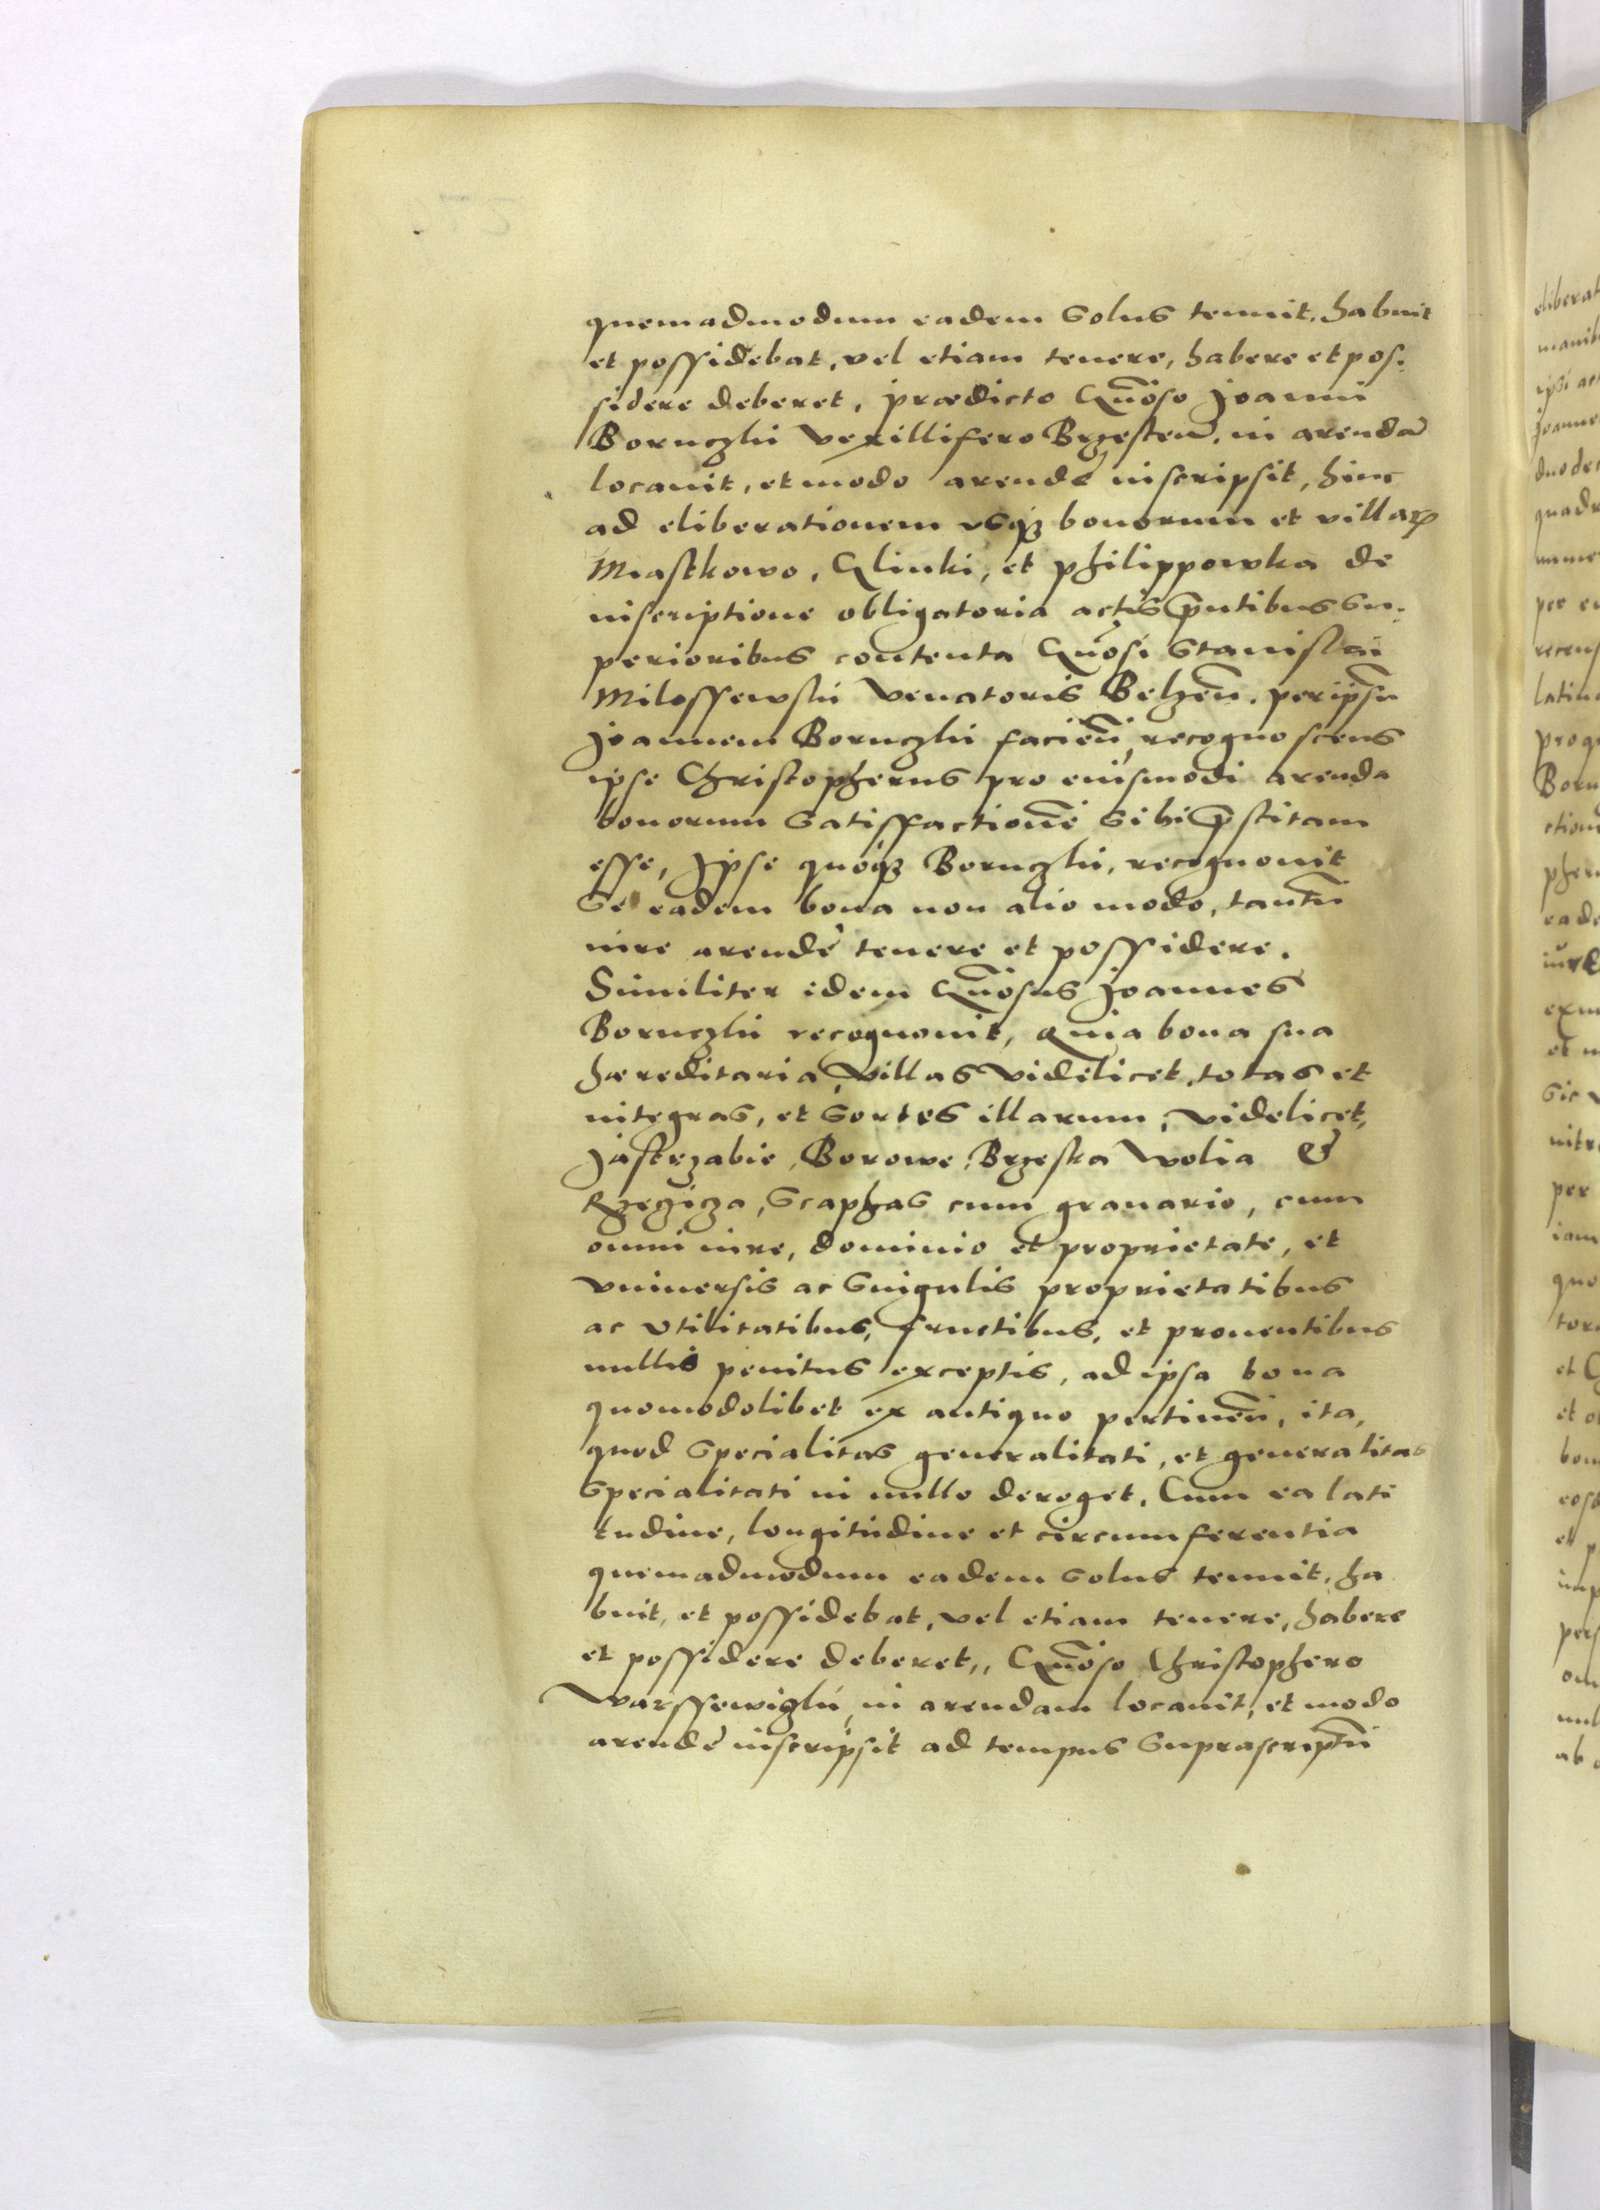 quemadmodum eadem solus tenuit, habuit
et possidebat, vel etiam tenere, habere et pos:
sidere deberet, prædicto Gn̄oso Joanni
Boruczki vexillifero Brzesten̄. in arendā
locauit, et modo arendę inscripsit, hinc
ad eliberationem vsq₃ bonorum et villarꝝ
Miastkowo, Glinki, et philippowka de
inscriptione obligatoria actis p̄ntibus su:
perioribus contenta Gn̄osi Stanislai
Milossewski venatoris Belzen̄. per ipsū
Joannem Boruczki facien̄, recognoscens
ipse Christopherus pro eiusmodi arenda
bonorum satisfactionē sibi p̄stitam
esse, Jpse quoq₃ Boruczki, recognouit
se eadem bona non alio modo, tantū
iure arendę tenere et possidere.
Similiter idem Gn̄osus Joannes
Boruczki recognouit, Quia bona sua
hæreditaria, villas videlicet, totas et
integras, et sortes illarum, videlicet,
Jastrzabie, Borowe, Brzeska wolia &
Rzeczicza, scaphas cum granario, cum
omni iure, dominio et proprietate, et
vniuersis ac singulis proprietatibus
ac vtilitatibus, fructibus, et prouentibus
nullis penitus exceptis, ad ipsa bona
quomodolibet ex antiquo pertinen̄, ita,
quod specialitas generalitati, et generalitas
specialitati in nullo deroget, Cum ea lati
tudine, longitudine et circumferentia
quemadmodum eadem solus tenuit, ha
buit, et possidebat, vel etiam tenere, habere
et possidere deberet,, Gn̄oso Christophero
Warssewiczki, in arendam locauit, et modo
arendę inscripsit ad tempus suprascriptū